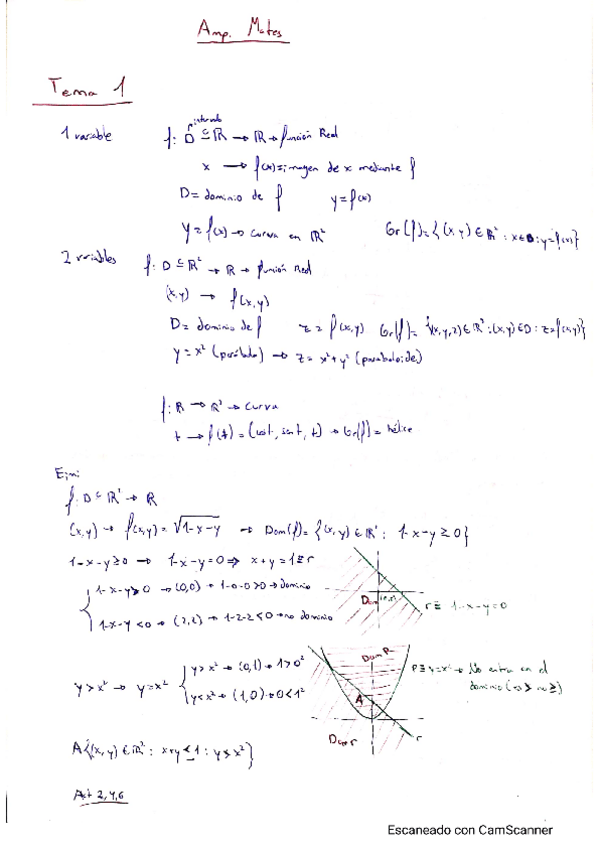 Amp. Mates
Tema 1
1 variable f: D ⊆ ℝ → ℝ → función Real
intervalo
x → f(x) = imagen de x mediante f
D = dominio de f y = f(x)
y = f(x) → curva en ℝ² Gr(f) = {(x,y) ∈ ℝ² : x ∈ D : y = f(x)}
2 variables f: D ⊆ ℝ² → ℝ → función Real
(x,y) → f(x,y)
D = dominio de f z = f(x,y) Gr(f) = {(x,y,z) ∈ ℝ³ : (x,y) ∈ D : z = f(x,y)}
y = x² (parábola) → z = x² + y² (paraboloide)
f: ℝ → ℝ³ → curva
t → f(t) = (cost, sint, t) → Gr(f) = hélice
Ejm:
f: D ⊆ ℝ² → ℝ
(x,y) → f(x,y) = √1-x-y → Dom(f) = {(x,y) ∈ ℝ² : 1-x-y ≥ 0}
1-x-y ≥ 0 → 1-x-y = 0 ⇒ x + y = 1 ≡ r
1-x-y > 0 → (0,0) → 1-0-0 > 0 → dominio
Dom
r ≡ 1-x-y = 0
1-x-y < 0 → (2,2) → 1-2-2 < 0 → no dominio
Dom P
y > x² → y = x² { y > x² → (0,1) → 1 > 0²
y < x² → (1,0) → 0 < 1²
P ≡ y = x² → No entra en el
dominio (es > no ≥)
A
Dom r
r
A {(x,y) ∈ ℝ² : x+y ≤ 1 : y > x²}
Act 2,4,6
Escaneado con CamScanner